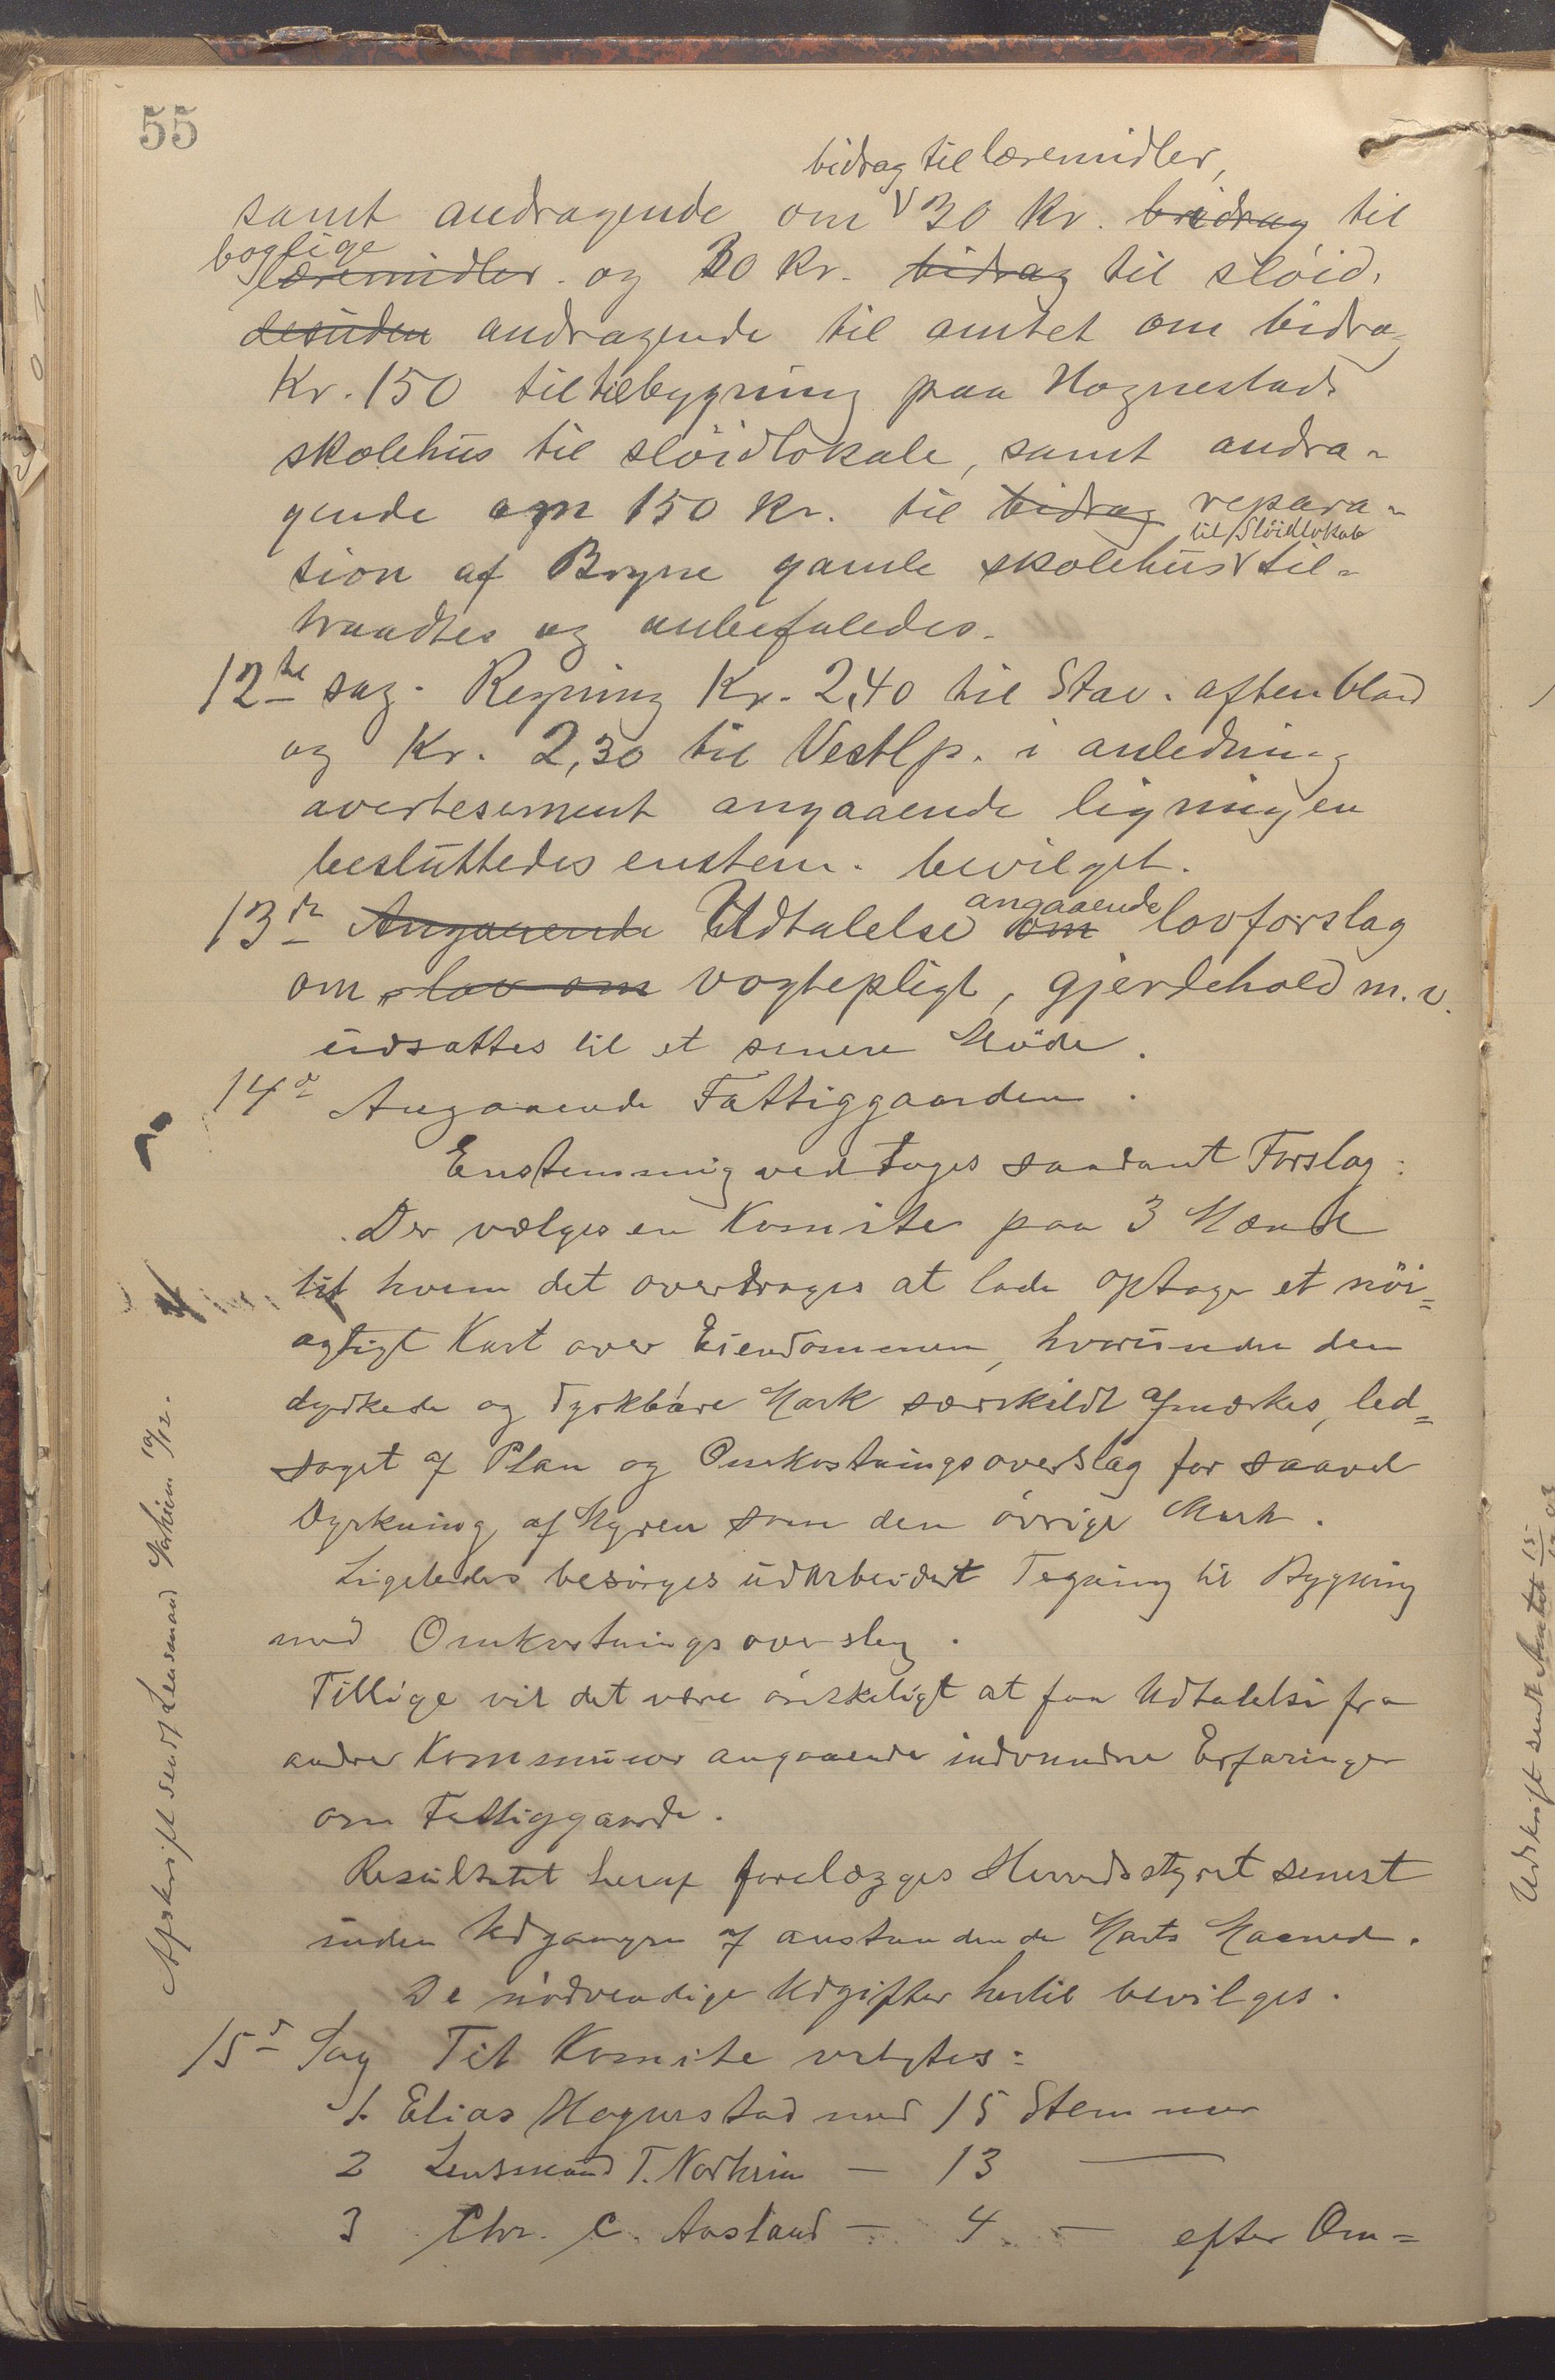 55
bidrag til læremidler,
samt andragende om 30 Kr. bidrag til
boglige
læremidler. og 20 Kr. bidrag til slöid.
desuden andragende til amtet om bidrag
Kr. 150 til tilbygning paa Hognestads
skolehus til slöidlokale, samt andra-
gende om 150 Kr. til bidrag repara-
til Slöidlokale
sion af Bryne gamle skolehus til-
traadtes og anbefaledes.
12te sag. Regning Kr. 2,40 til Stav. aftenblad
og Kr. 2,30 til Vestlp. i anledning
avertesement angaaende ligningen
besluttedes enstem. bevilget.
angaaende
13de Angaaende Udtalelse om lovforslag
om lov om vogtepligt, gjerdehold m.v.
udsattes til et senere Möde.
14de Angaaende Fattiggaarden.
Enstemmig vedtoges saadant Forslag:
Der vælges en Komite paa 3 Mænd
til hvem det overdrages at lade optage et nöi=
agtigt Kart over Eiendommen, hvorunder den
dyrkede og dyrkbare Mark særskildt afmærkes, led=
saget af Plan og Omkostningsoverslag for saavel
Dyrkning af Myren som den övrige Mark.
Ligeledes besörges udarbeidet Tegning til Bygning
med Omkostningsoverslag.
Tillige vil det være önskeligt at faa Udtalelse fra
andre Kommuner angaaende indvundne Erfaringer
om Fattiggaarde.
Resultatet heraf forelægges Herredsstyret senest
inden Udgangen af anstundende Marts Maaned.
De nödvendige Udgifter hertil bevilges.
15de Sag Til Komite valgtes:
1. Elias Hognestad med 15 Stemmer
2 Lensmand T. Norheim — 13 —
3 Chr. C. Aasland — 4 — efter Om=
Afskrift sendt Lensmand Norheim 19/12.
Udskrift sendt Amtet 15/12 93